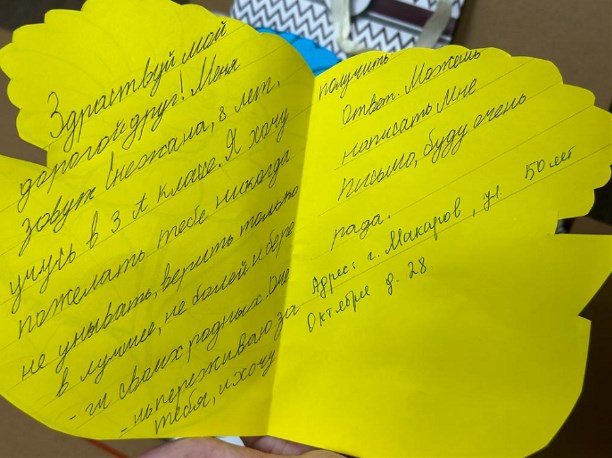 Здраствуй мой
дорогой друг! Меня
зовут Снежана, 8 лет,
учусь в 3 А класе. Я хочу
пожелать тебе никогда
не унывать, верить только
в лучшее, не болей и бере
- ги своих родных. Оче
- нь переживаю за
тебя, и хочу
получить
ответ. Можешь
написать мне
письмо, буду очень
рада.
Адрес: г. Макаров, ул. 50 лет
Октября д. 28